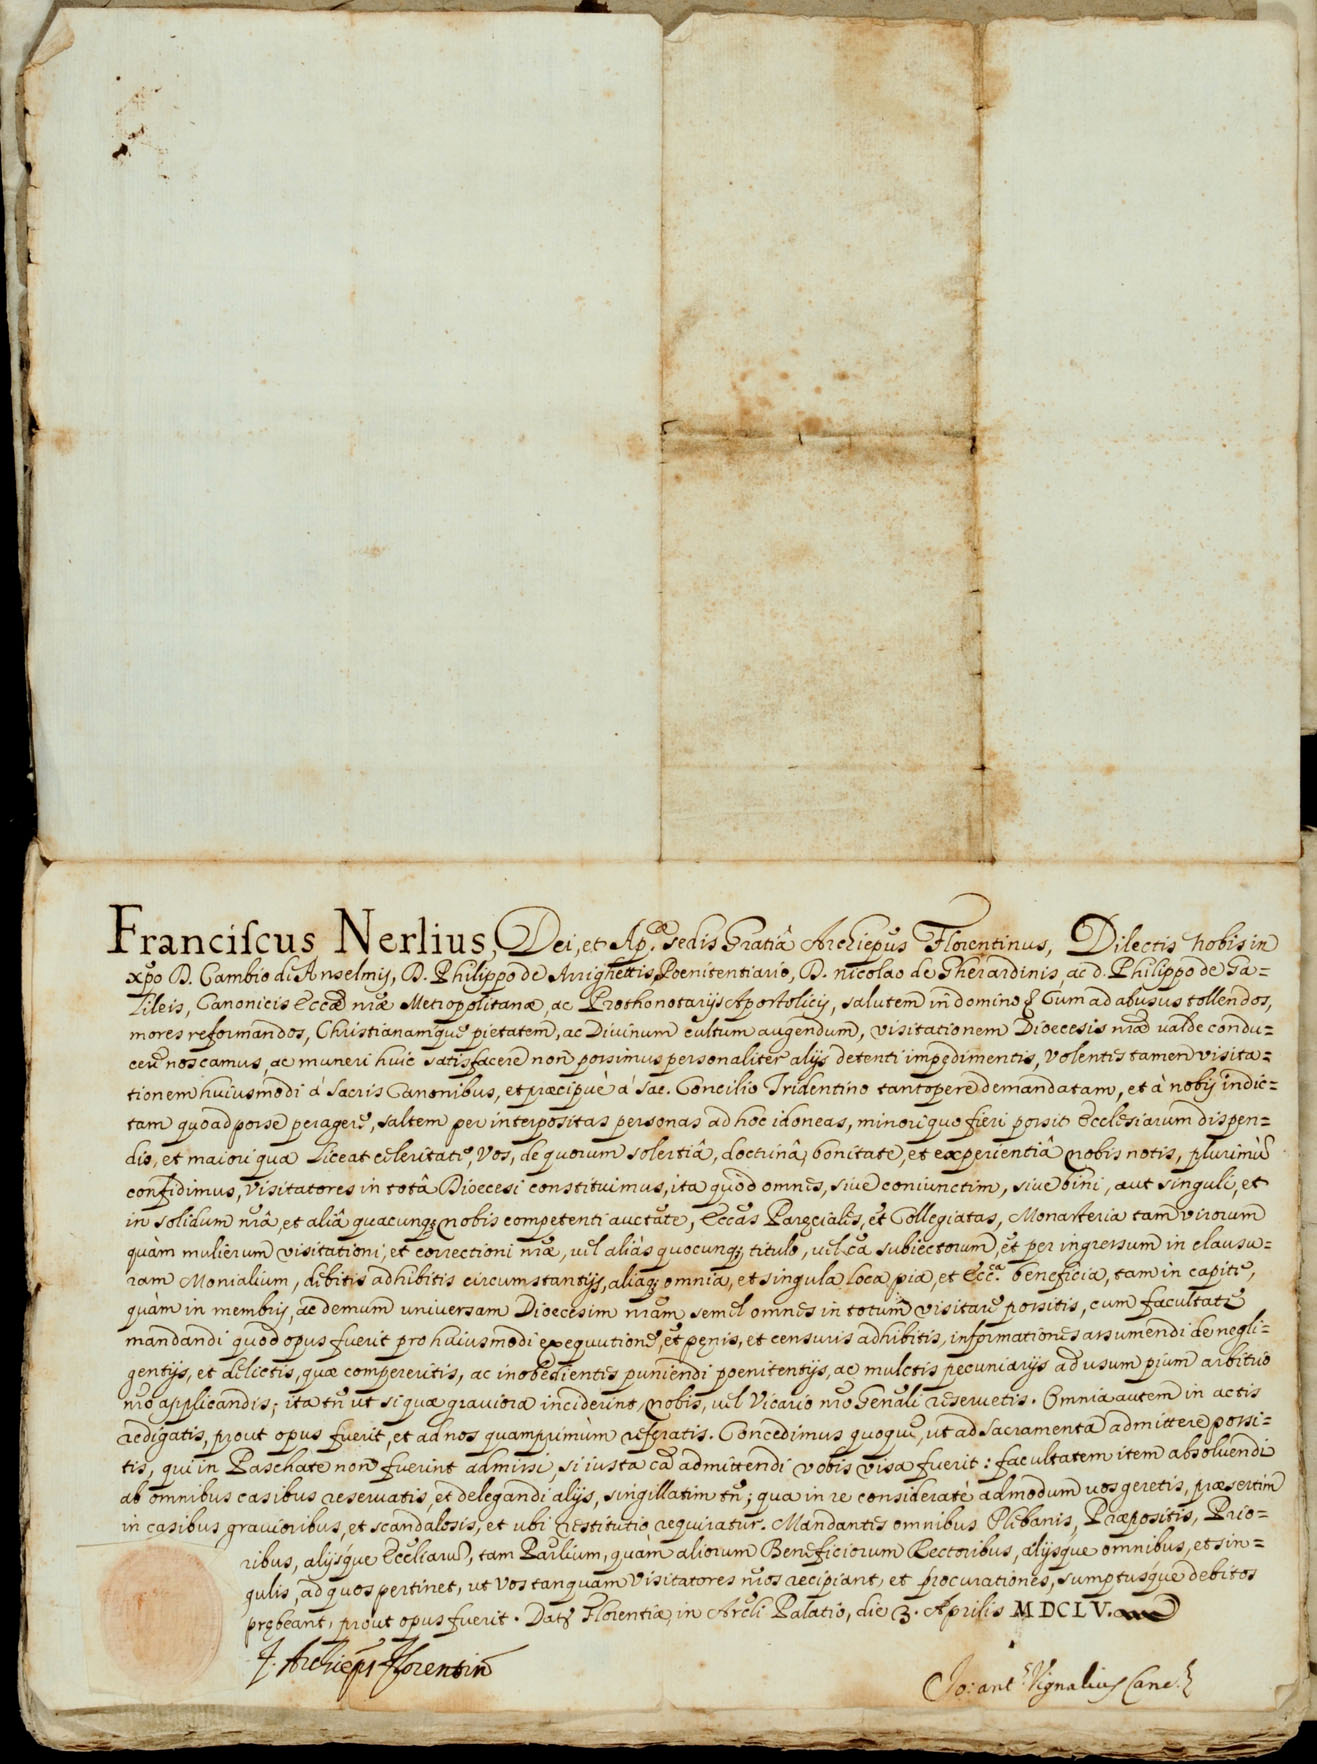 Franciscus Nerlius, Dei, et Ap.cæ sedis Gratiâ Archiepũs Florentinus, Dilectis nobis in
xp̃o D. Cambio de Anselmis, D. Philippo de Arrighettis Poenitentiario, D. Nicolao de Gherardinis, ac d. Philippo de Ga=
lileis, Canonicis Eccæ̃ nr̃æ Metropolitanæ, ac Prothonotarijs Apostolicis, salutem in domino. Cùm ad abusus tollendos,
mores reformandos, Christianamque pietatem, ac Divinum cultum augendum, visitationem Dioecesis nr̃æ valde condu=
cere noscamus, ac muneri huic satisfacere non possimus personaliter alijs detenti impedimentis, Volentes tamen visita=
tionem huiusmodi à Sacris Canonibus, et præcipuè à Sac. Concilio Tridentino tantopere demandatam, et à nobis indic=
tam quoad posse peragere, saltem per interpositas personas ad hoc idoneas, minori quo fieri possit Ecclesiarum dispen=
dio, et maiori qua liceat celeritate, Vos, de quorum solertiâ, doctrinâ, bonitate, et experientiâ nobis notis, plurimũ
confidimus, Visitatores in totâ Dioecesi constituimus, ita quòd omnes, siue coniunctim, siue bini, aut singuli, et
in solidum nr̃â, et aliâ quacunq; nobis competenti auctãte, Eccãs Parochiales, et Collegiatas, Monasteria tam virorum
quàm mulierum visitationi, et correctioni nr̃æ, uel aliàs quocunq; titulo, uel cã subiectorum, et per ingressum in clausu=
ram Monialium, debitis adhibitis circumstantijs, aliaq; omnia, et singula loca pia, et Ecc.ca beneficia, tam in capite,
quàm in membris, ac demum universam Dioecesim nr̃am semel omnes in totum visitare possitis, cum facultate
mandandi quod opus fuerit pro huiusmodi exequutione, et pęnis, et censuris adhibitis, informationes assumendi de negli=
gentijs, et delictis, quæ compereritis, ac inobedientes puniendi poenitentijs, ac mulctis pecuniarijs ad usum pium arbitrio
nr̃o applicandis; ita tñ ut si quæ grauiora inciderint, nobis, uel Vicario nr̃o Genãli reseruetis. Omnia autem in actis
redigatis, prout opus fuerit, et ad nos quamprimùm referatis. Concedimus quoque, ut ad Sacramenta admittere possi=
tis, qui in Paschate non fuerint admissi, si iusta cã admittendi vobis visa fuerit: facultatem item absoluendi
ab omnibus casibus reseruatis, et delegandi alijs, singillatim tñ; qua in re consideratè admodum uos geretis, præsertim
in casibus grauioribus, et scandalosis, et ubi restitutio requiratur. Mandantes omnibus Plebanis, Præpositis, Prio=
ribus, alijsque Eccliarũ, tam Par̃lium, quàm aliorum Beneficiorum Rectoribus, alijsque omnibus, et sin=
gulis, ad quos pertinet, ut Vos tanquam Visitatores nr̃os recipiant, et procurationes, sumptusque debitos
prębeant, prout opus fuerit. Dat. Florentiæ, in Archĩli Palatio, die 3. Aprilis MDCLV.
F. Archiep̃s Florentin̄
Jo: ant.s Vignalius Canc.